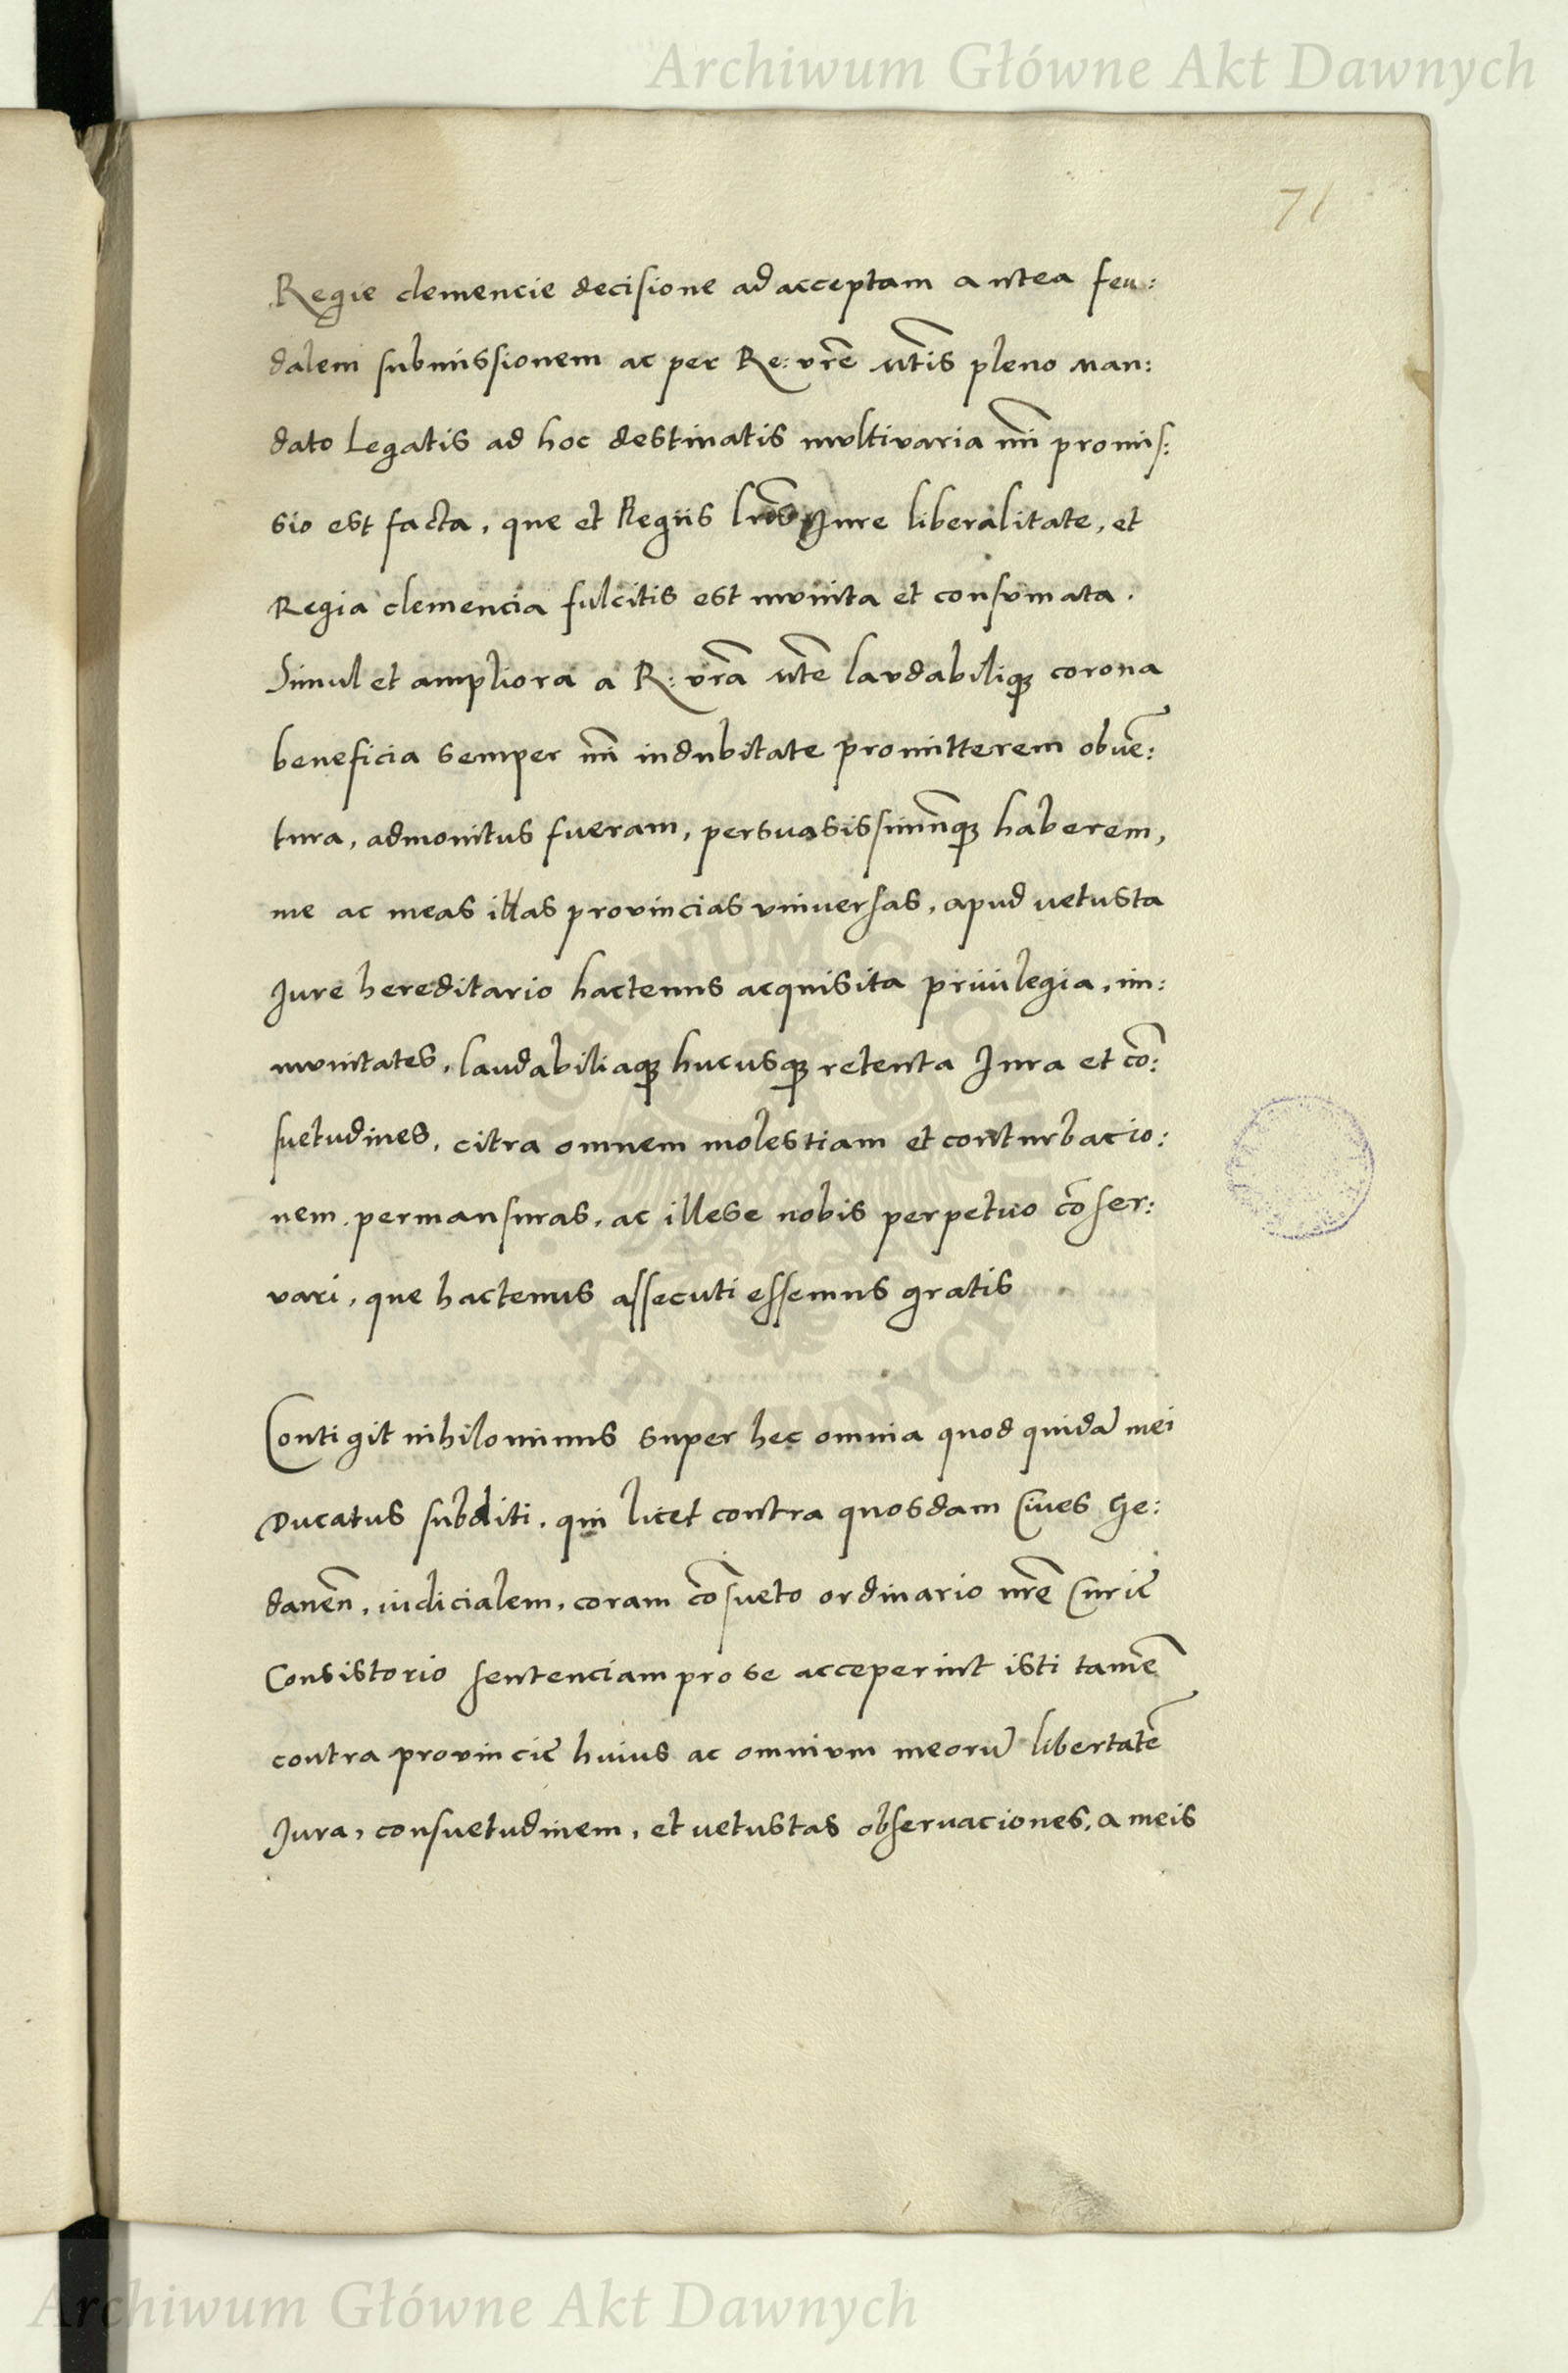 Archiwum Główne Akt Dawnych
71
Regie clemencie decisione ad acceptam antea feu:
dalem submissionem ac per Re: vrē Mt̄is pleno man:
dato Legatis ad hoc destinatis multivaria m̄i promis:
sio est facta, que et Regiis lr̄is Jure liberalitate, et
Regia clemencia fulcitis est mvnita et consvmata.
Simul et ampliora a R: vrā Mt̄e lavdabiliq₃ corona
beneficia semper m̄i indubitate promitterem obvē:
tura, admonitus fueram, persuasissimūq₃ haberem,
me ac meas illas provincias vniversas, apud vetusta
Jure hereditario hactenus acquisita privilegia, im:
mvnitates, laudabiliaq₃ hucusq₃ retenta Jura et cō:
suetudines, citra omnem molestiam et conturbacio:
nem permansuras, ac illese nobis perpetuo cōser:
vari, que hactenus assecuti essemus gratis
Contigit nihilominus super hec omnia quod quidā mei
Ducatus subditi, qui licet contra quosdam Cives Ge:
daneñ, iudicialem, coram cōsueto ordinario nrē Curie
Consistorio sentenciam pro se acceperint isti tamē
contra provincie huius ac omnivm meorū libertatē
Jura, consuetudinem, et vetustas observaciones, a meis
ARCHIWUM GŁÓWNE AKT DAWNYCH
Archiwum Główne Akt Dawnych